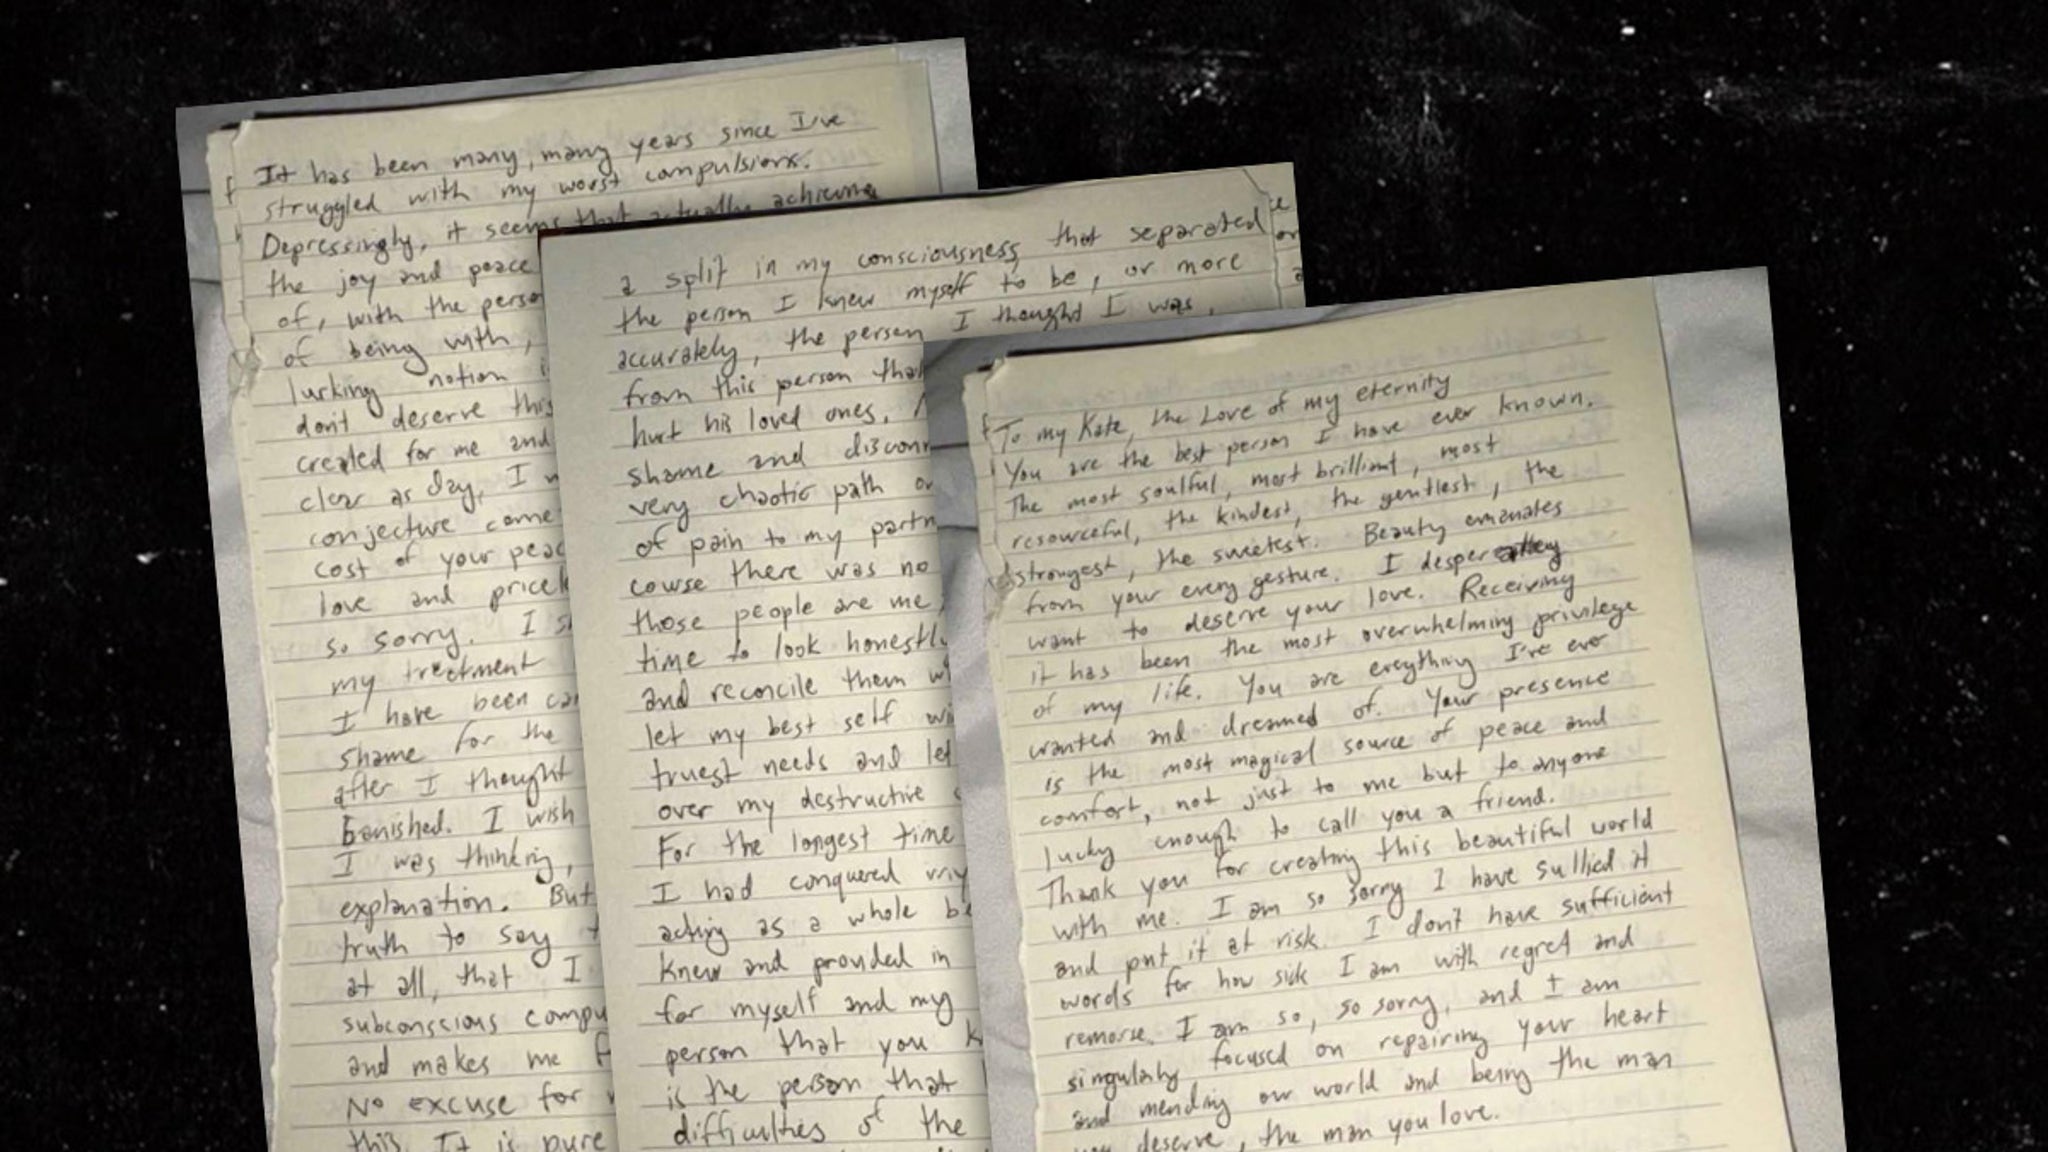 It has been many, many years since I've
struggled with my worst compulsions.
Depressingly, it seems that actually achieving
the joy and peace
of, with the person
of being with,
lurking notion
don't deserve this
created for me and
clear as day, I
conjecture come
cost of your peac
love and pricel
so sorry. I
my treatment
I have been
shame for the
after I thought
banished. I wish
I was thinking,
explanation. But
truth to say
at all, that I
subconscious compu
and makes me
No excuse for
this. It is pure
a split in my consciousness that separated
the person I knew myself to be, or more
accurately, the person I thought I was,
from this person that
hurt his loved ones.
shame and disconn
very chaotic path
of pain to my partn
course there was no
those people are me,
time to look honestly
and reconcile them
let my best self
truest needs and let
over my destructive
For the longest time
I had conquered
acting as a whole
knew and provided in
for myself and my
person that you
is the person that
difficulties of the
To my Kate, the Love of my eternity
You are the best person I have ever known.
The most soulful, most brilliant, most
resourceful, the kindest, the gentlest, the
strongest, the sweetest. Beauty emanates
from your every gesture. I desperately
want to deserve your love. Receiving
it has been the most overwhelming privilege
of my life. You are erything I've ever
wanted and dreamed of. Your presence
is the most magical source of peace and
comfort, not just to me but to anyone
lucky enough to call you a friend.
Thank you for creating this beautiful world
with me. I am so sorry I have sullied it
and put it at risk. I don't have sufficient
words for how sick I am with regret and
remorse. I am so, so sorry, and I am
singularly focused on repairing your heart
and mending our world and being the man
you deserve, the man you love.